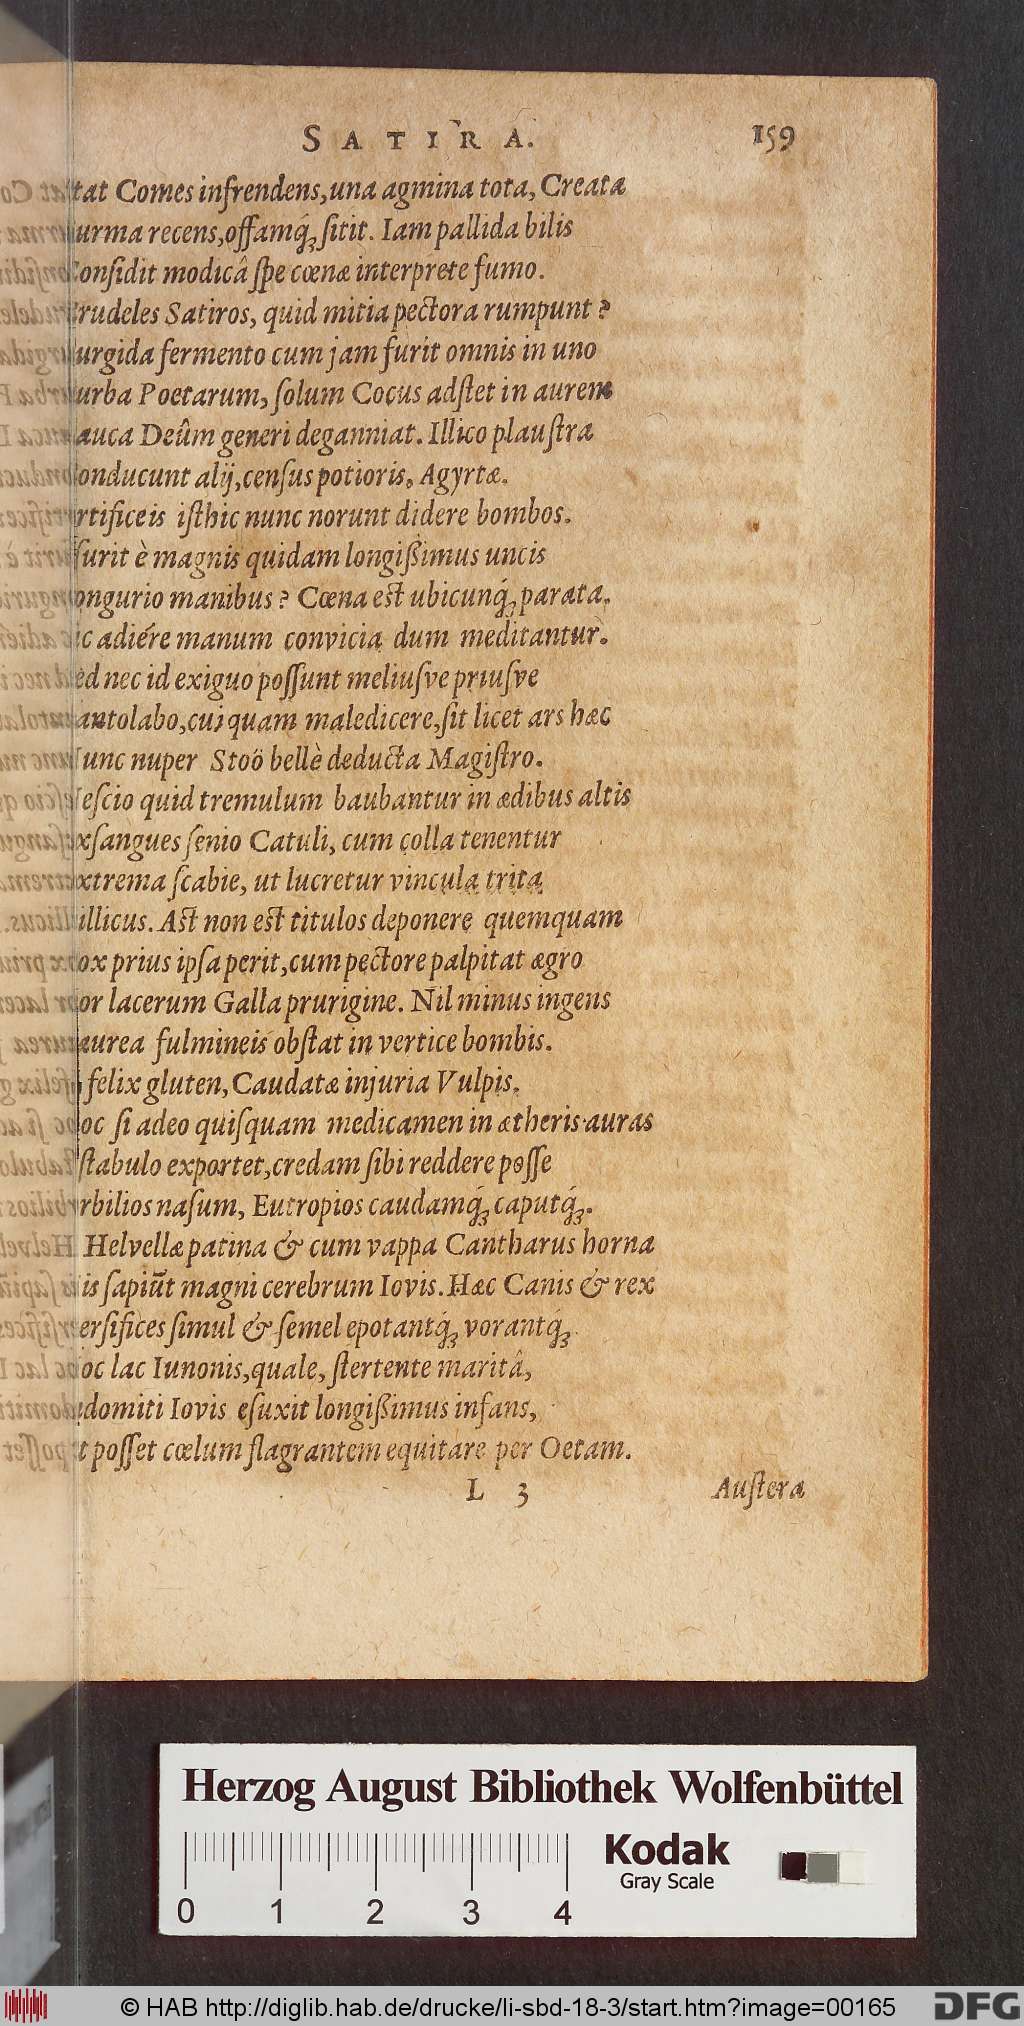 SATIRA. 159
tat Comes infrendens, una agmina tota, Creatæ
urma recens, offamq́; ſitit. Iam pallida bilis
onſidit modicâ ſpe cœnæ interprete fumo.
rudeles Satiros, quid mitia pectora rumpunt?
urgida fermento cum jam furit omnis in uno
urba Poetarum, ſolum Cocus adſtet in aurem
auca Deûm generi deganniat. Illico plauſtra
onducunt alij, cenſus potioris, Agyrtæ.
rtificeis iſthic nunc norunt didere bombos.
ſurit è magnis quidam longiſſimus uncis
ongurio manibus? Cœna eſt ubicunq́; parata.
ic adiére manum convicia dum meditantur.
ed nec id exiguo poſſunt meliuſve priuſve
antolabo, cuj quam maledicere, ſit licet ars hæc
unc nuper Stoö bellè deducta Magiſtro.
eſcio quid tremulum baubantur in ædibus altis
xſangues ſenio Catuli, cum colla tenentur
xtrema ſcabie, ut lucretur vincula trita
illicus. Aſt non eſt titulos deponere quemquam
ox prius ipſa perit, cum pectore palpitat ægro
or lacerum Galla prurigine. Nil minus ingens
aurea fulmineis obſtat in vertice bombis.
felix gluten, Caudatæ injuria Vulpis.
oc ſi adeo quiſquam medicamen in ætheris auras
ſtabulo exportet, credam ſibi reddere poſſe
rbilios naſum, Eutropios caudamq́; caputq́;.
Helvellæ patina & cum vappa Cantharus horna
is ſapiūt magni cerebrum Iovis. Hæc Canis & rex
erſifices ſimul & ſemel epotantq́; vorantq́;
oc lac Iunonis, quale, ſtertente maritâ,
domiti Iovis eſuxit longiſſimus infans,
t poſſet cœlum flagrantem equitare per Oetam.
L 3 Auſtera
Herzog August Bibliothek Wolfenbüttel
0 1 2 3 4
Kodak
Gray Scale
© HAB http://diglib.hab.de/drucke/li-sbd-18-3/start.htm?image=00165
DFG